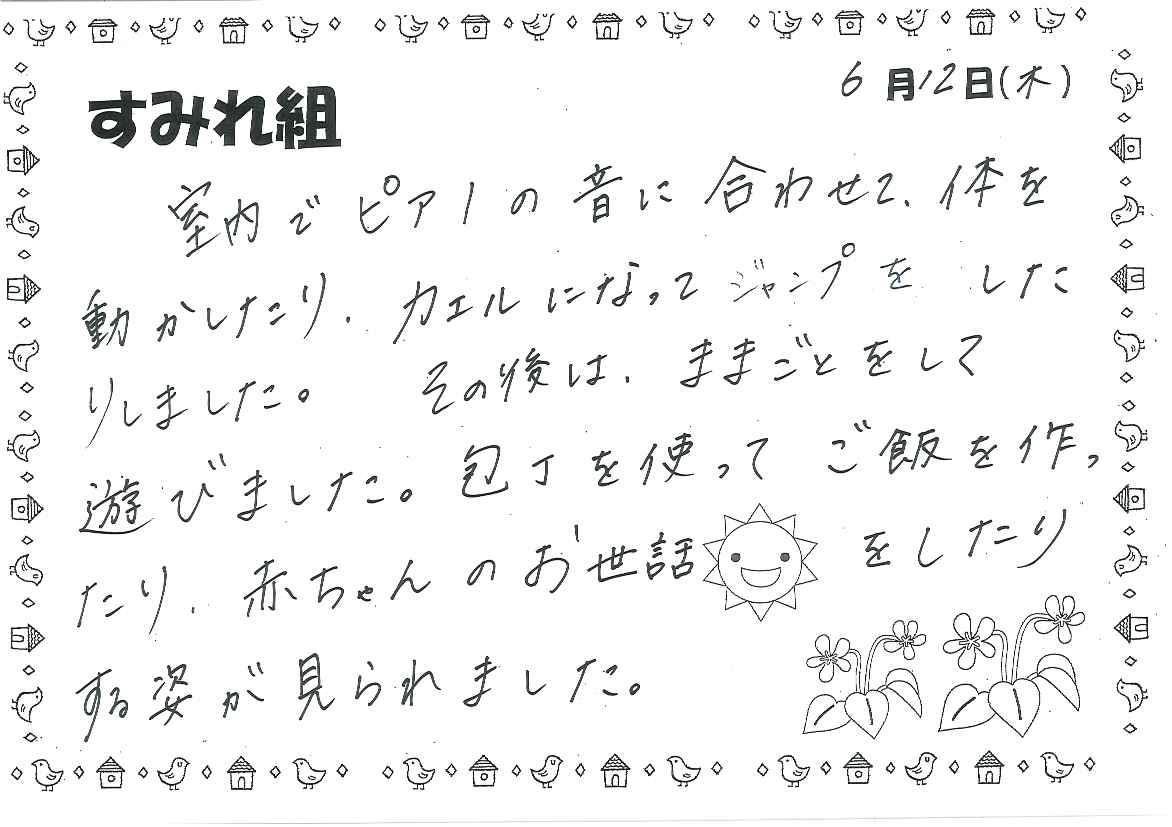 6月12日(木)
すみれ組
室内でピアノの音に合わせて、体を
動かしたり、カエルになってジャンプをした
りしました。 その後は、ままごとをして
遊びました。包丁を使ってご飯を作っ
たり、赤ちゃんのお世話をしたり
する姿が見られました。